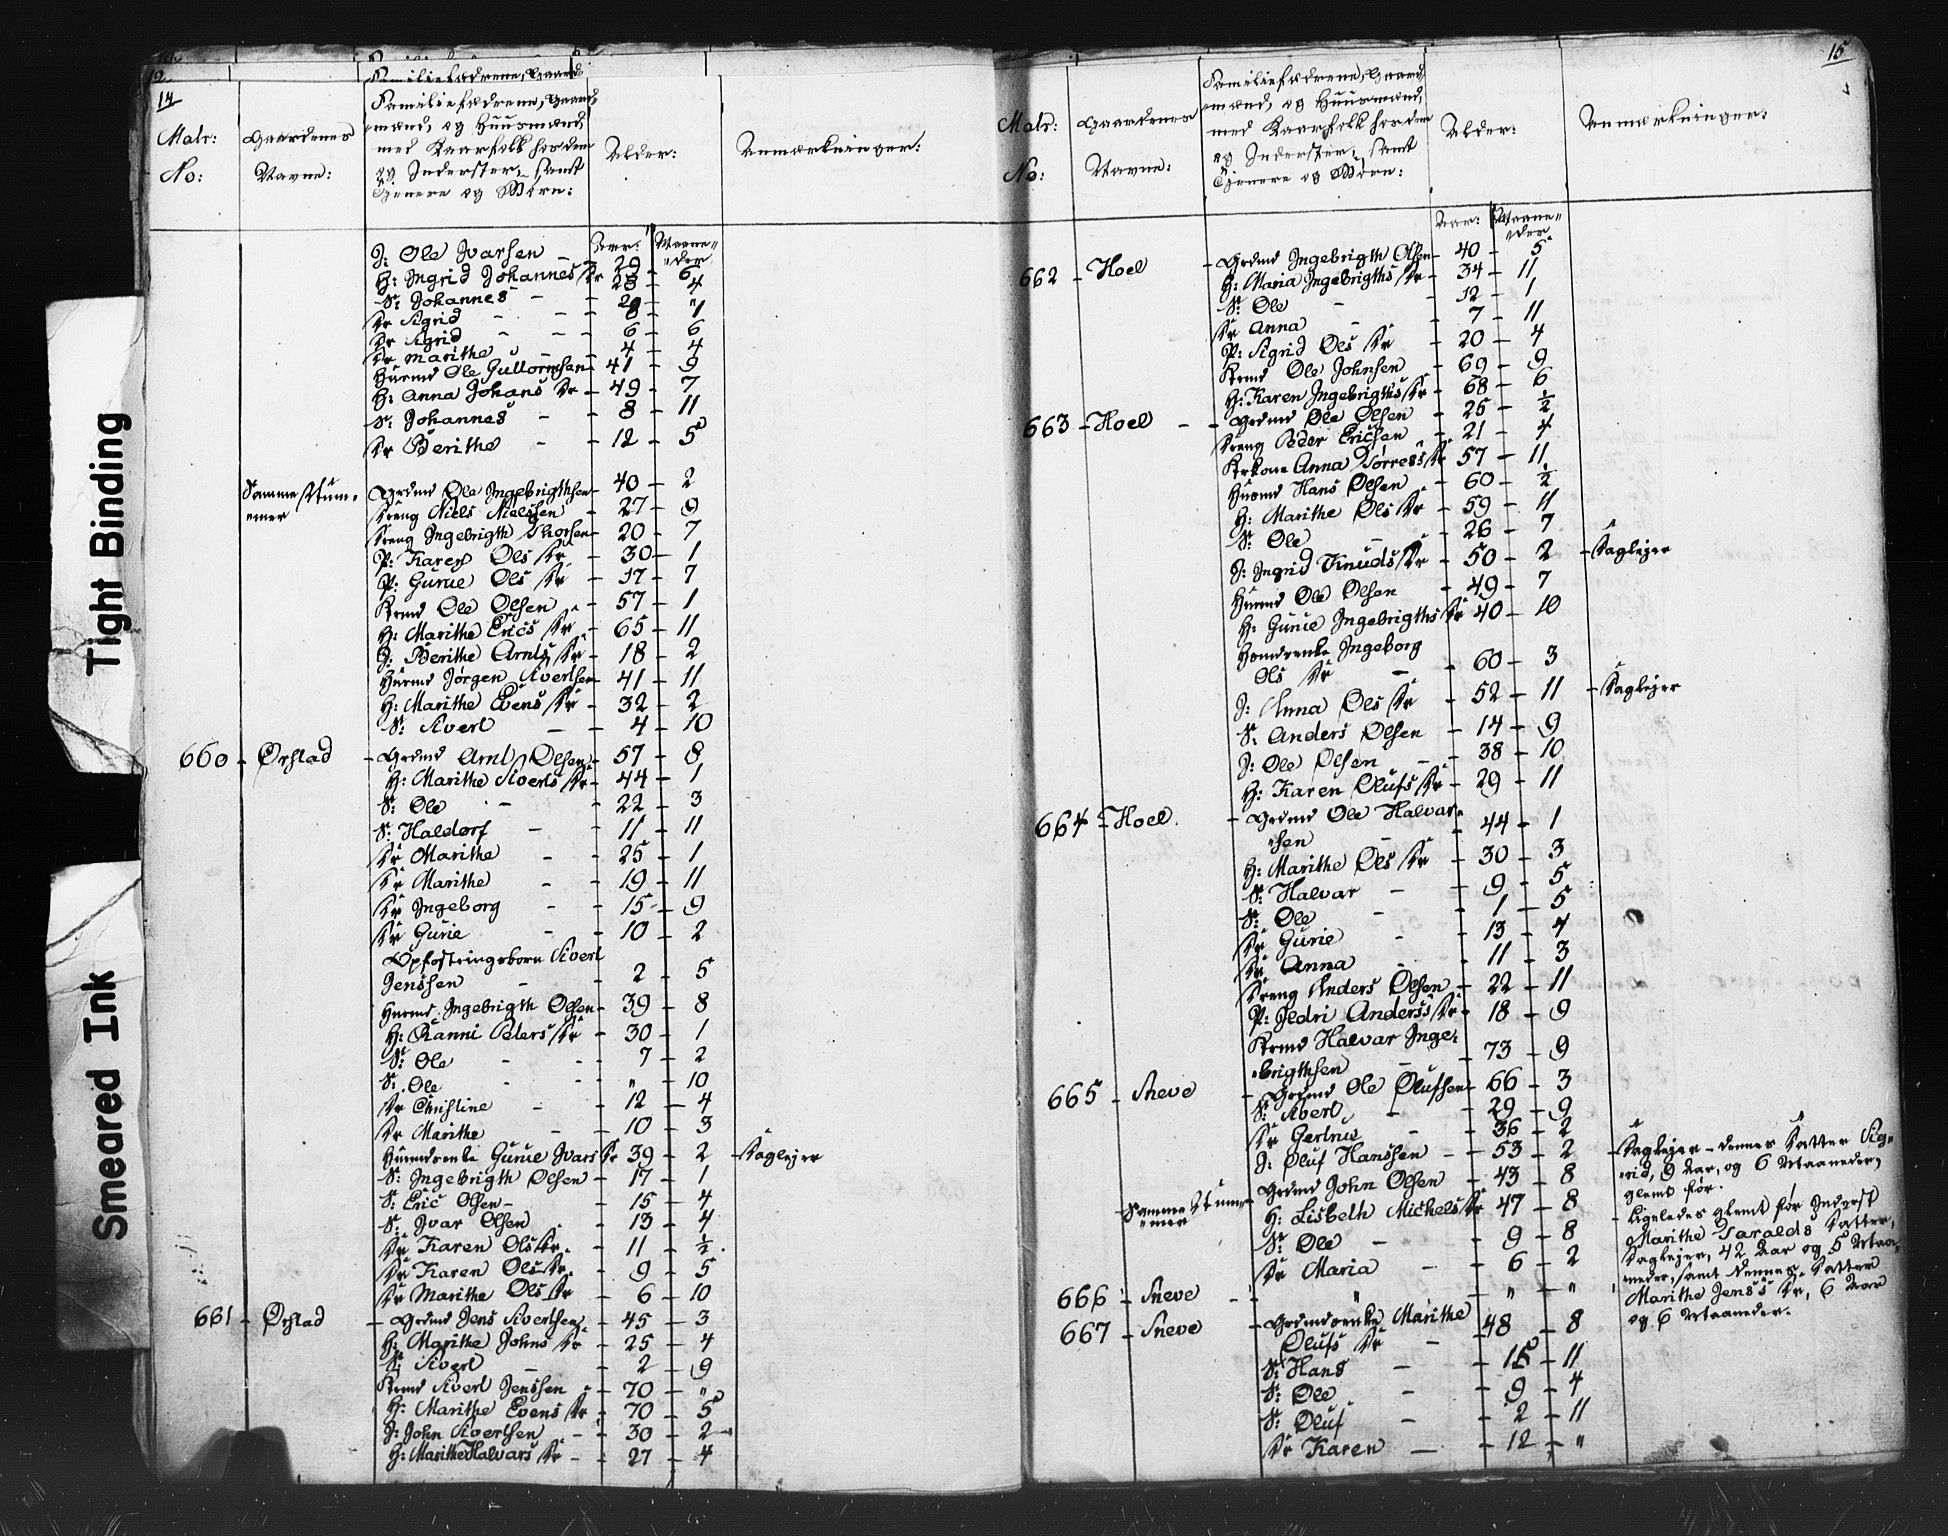 14
Matr:
No:
Gaardenes
Navne:
Familiefædrene, Gaard-
mænd, og Huusmænd,
med Kaarfolk hos dem
og Inderster, samt
Tjenere og Børn:
Alder:
Anmærkninger:
Aar: Maane-
der
I: Ole Ivarsen - 29 - 6
H: Ingrid Johannes Dr 28 - 4
S: Johannes - - 20 - "
Dr Sigrid - - 8 - 1
Dr Sigrid - - 6 - 6
Dr Marithe - - 4 - 4
Huusmd Ole Gullormsen - 41 - 9
H: Anna Johans Dr - 49 - 7
S: Johannes - 8 - 11
Dr Berithe - - 12 - 5
Samme Num-
mer
Grdmd Ole Ingebrigthsen - 40 - 2
Dreng Niels Nielssen - 27 - 9
Dreng Ingebrigth Thorsen - 20 - 7
P: Karen Ols Dr - 30 - 1
P: Gurue Ols Dr - 17 - 7
Krmd Ole Olsen - 57 - 1
H: Marithe Erics Dr - 65 - 11
I: Berithe Arnts Dr - 18 - 2
Huusmd Jørgen Sivertsen - 41 - 11
H: Marithe Evens Dr - 32 - 2
S: Sivert - 4 - 10
660 - Ørstad - Grdmd Arnt Olsen - 57 - 8
H: Marithe Siverts Dr - 44 - 1
S: Ole - - 22 - 3
S: Haldorf - - 11 - 11
Dr Marithe - - 25 - 1
Dr Marithe - - 19 - 11
Dr Ingeborg - - 15 - 9
Dr Gurie - - 10 - 2
Opfostringsbørn Sivert
Jenssen - - 2 - 5
Huusmd Ingebrigth Olsen - 39 - 8
H: Ranni Peders Dr - 30 - 1
S: Ole - - 7 - 2
S: Ole - - " - 10
Dr Christine - - 12 - 4
Dr Marithe - - 10 - 3
Huusmdenke Gurue Ivars Dr 39 - 2 - Daglejer
S: Ingebrigth Olsen - 17 - 1
S: Eric Olsen - - 15 - 4
S: Ivar Olsen - 13 - 4
Dr Karen Ols Dr - 11 - ½
Dr Karen Ols Dr - 9 - 5
Dr Marithe Ols Dr - 6 - 10
661 - Ørstad - Grdmd Jens Sivertsen - 45 - 3
H: Marithe Johns Dr - 25 - 4
S: Sivert - - 2 - 9
Krmd Sivert Jenssen - 70 - "
H: Marithe Evens Dr - 70 - 5
I: John Sivertsen - 30 - 2
H: Marithe Halvars Dr - 27 - 4
15
Matr:
No:
Gaardenes
Navne:
Familiefædrene, Gaard-
mænd, og Huusmænd,
med Kaarfolk hos dem
og Inderster, samt
Tjenere og Børn:
Alder:
Anmærkninger:
Aar: Maane-
der
662 - Hoel - Grdmd Ingebrigth Olsen - 40 - 5
H: Maria Ingebrigths Dr - 34 - 11
S: Ole - - 12 - 1
Dr Anna - - 7 - 11
P: Sigrid Ols Dr - 20 - 4
Krmd Ole Johnsen - 69 - 9
H: Karen Ingebrigths Dr - 68 - 6
663 - Hoel - - Grdmd Ole Olsen - 25 - ½
Dreng Peder Ericsen - 21 - 4
Krkone Anna Torress Dr - 57 - 11
Huusmd Hans Olsen - 60 - ½
H: Marithe Ols Dr - 59 - 11
S: Ole - - 26 - 7
I: Ingrid Knuds Dr - 50 - 2 - Daglejer
Huusmd Ole Olsen - 49 - 7
H: Gurue Ingebrigths Dr 40 - 10
Huusmdenke Ingeborg
Ols Dr - - 60 - 3
I: Anna Ols Dr - 52 - 11 - Daglejer
S: Anders Olsen - 14 - 9
I: Ole Olsen - - 38 - 10
H: Karen Olufs Dr - 29 - 11
664 - Hoel - Grdmd Ole Halvar-
sen - - 44 - 1
H: Marithe Ols Dr - 30 - 3
S: Halvar - - 9 - 5
S: Ole - - 1 - 5
Dr Gurie - - 13 - 4
Dr Anna - - 11 - 3
Dreng Anders Olsen - 22 - 11
P: Jedri Anderss Dr - 18 - 9
Krmd Halvar Inge-
brigthsen - - 73 - 9
665 - Sneve - Grdmd Ole Olufsen - 66 - 3
S: Sivert - - 29 - 9
Dr Gertrue - - 36 - 2
I: Oluf Hanssen - - 53 - 2 - Daglejer - dennes Datter Sig-
rid, 9 Aar, og 6 Maaneder,
glemt før.
Samme Num-
mer
Grdmd John Olsen - 43 - 8
H: Lisbeth Michels Dr 47 - 8
S: Ole - - 9 - 8
Dr Maria - - 6 - 2
- Ligeledes glemt før Inderst
Marithe Taralds Datter,
Daglejer, 42 Aar og 5 Maa-
neder, samt dennes Datter
Marithe Jenss Dr, 6 Aar
og 6 Maaneder.
666 - Sneve - - " - " - "
667 - Sneve - Grdmdenke Marithe
Olufs Dr - 48 - 8
S: Hans - - 15 - 11
S: Ole - - 9 - 4
S: Oluf - - 2 - 11
Dr Karen - - 12 - "
Tight Binding
Smeared Ink